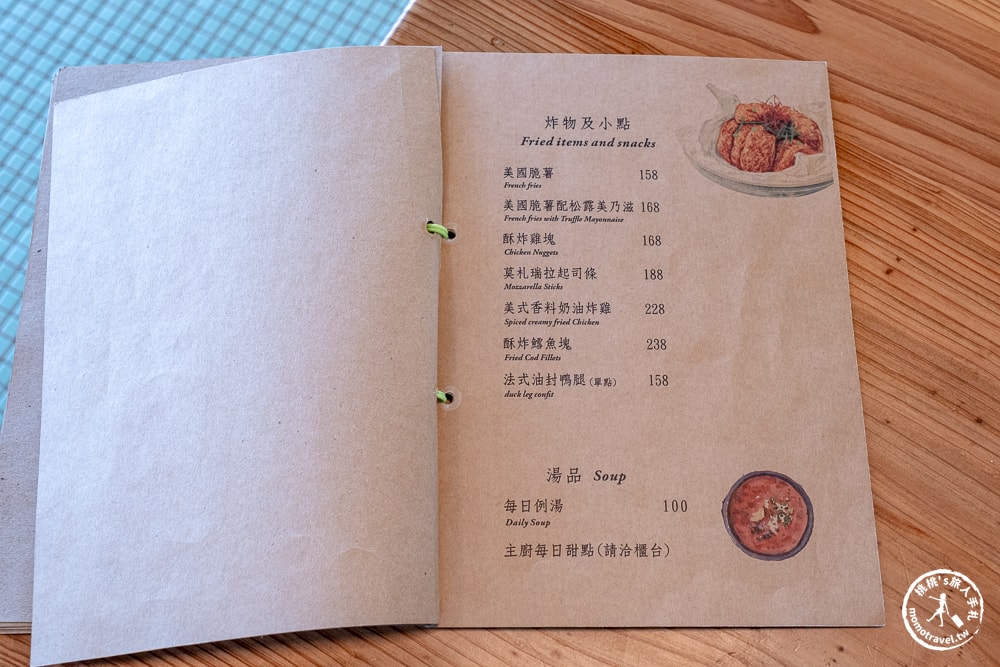 炸物及小點
Fried items and snacks
美國脆薯 158
French fries
美國脆薯配松露美乃滋 168
French fries with Truffle Mayonnaise
酥炸雞塊 168
Chicken Nuggets
莫札瑞拉起司條 188
Mozzarella Sticks
美式香料奶油炸雞 228
Spiced creamy fried Chicken
酥炸鱈魚塊 238
Fried Cod Fillets
法式油封鴨腿(單點) 158
duck leg confit
湯品 Soup
每日例湯 100
Daily Soup
主廚每日甜點(請洽櫃台)
桃桃's旅人手札
momotravel.tw